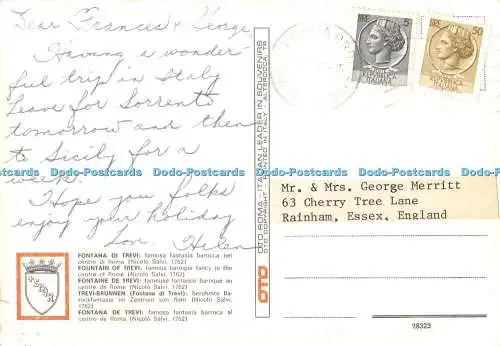 Dear Frances & George,
Having a wonder-
ful trip in Italy
Leave for Sorrento
tomorrow and then
to Sicily for a
week.
Hope you folks
enjoy your holiday
Love, Helen
FONTANA DI TREVI: famosa fantasia barocca nel
centro di Roma (Nicolò Salvi, 1762)
FOUNTAIN OF TREVI: famous baroque fancy in the
centre of Rome (Nicolò Salvi, 1762)
FONTAINE DE TREVI: fameuse fantaisie baroque au
centre de Rome (Nicolò Salvi, 1762)
TREVI-BRUNNEN (Fontane di Trevi): berühmte Ba-
rockfantasie im Zentrum von Rom (Nicolò Salvi,
1762)
FONTANA DE TREVI: famosa fantasia barroca al
centro de Roma (Nicolò Salvi, 1762)
OTO
OTO ROMA - ITALIAN LEADER IN SOUVENIRS
OTO COPYRIGHT - PRINTED IN ITALY
LIRE 5
REPVBBLICA
ITALIANA
LIRE 50
REPVBBLICA
ITALIANA
Mr. & Mrs. George Merritt
63 Cherry Tree Lane
Rainham, Essex, England
18323
Dado-Postcards Dado-Postcards Dado-Postcards Dado-Postcards Dado-Postcards Dado-Postcards